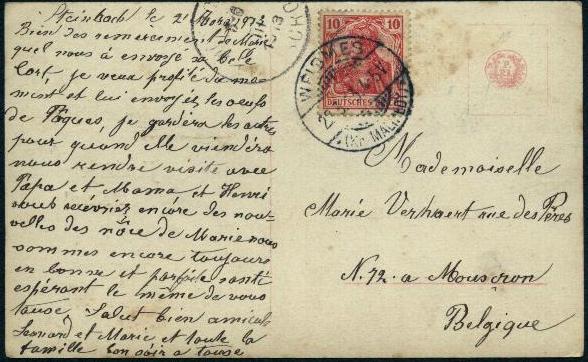 Steinbach le 2 Mars 1913
Bien des remerciement de Marie
quel nous à envoyé sa bele
Cart, je veux profité du mo-
ment et lui envoyés les oeufs
de Pâques, je garderé les autres
pour quand elle viendéra
nous rendre visite avec
Papa et Mama et Henri
vous recevriez encore des nou-
velles des nôce de Marie nous
sommes encore toujours
en bonne et parfaite santé
espérant le même de vous
touse. Salut bien amical
Leonard et Marie et toute la
famille bon soir a touse
10 10
DEUTSCHES REICH
WEISMES
(Kr. MALMEDY)
Mademoiselle
Marie Verhaert rue des Pères
N. 72. a Mouscron
Belgique